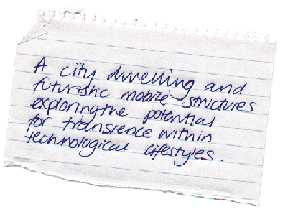 A city dwelling and
futuristic mobile structures
exploring the potential
for transience within
technological lifestyles